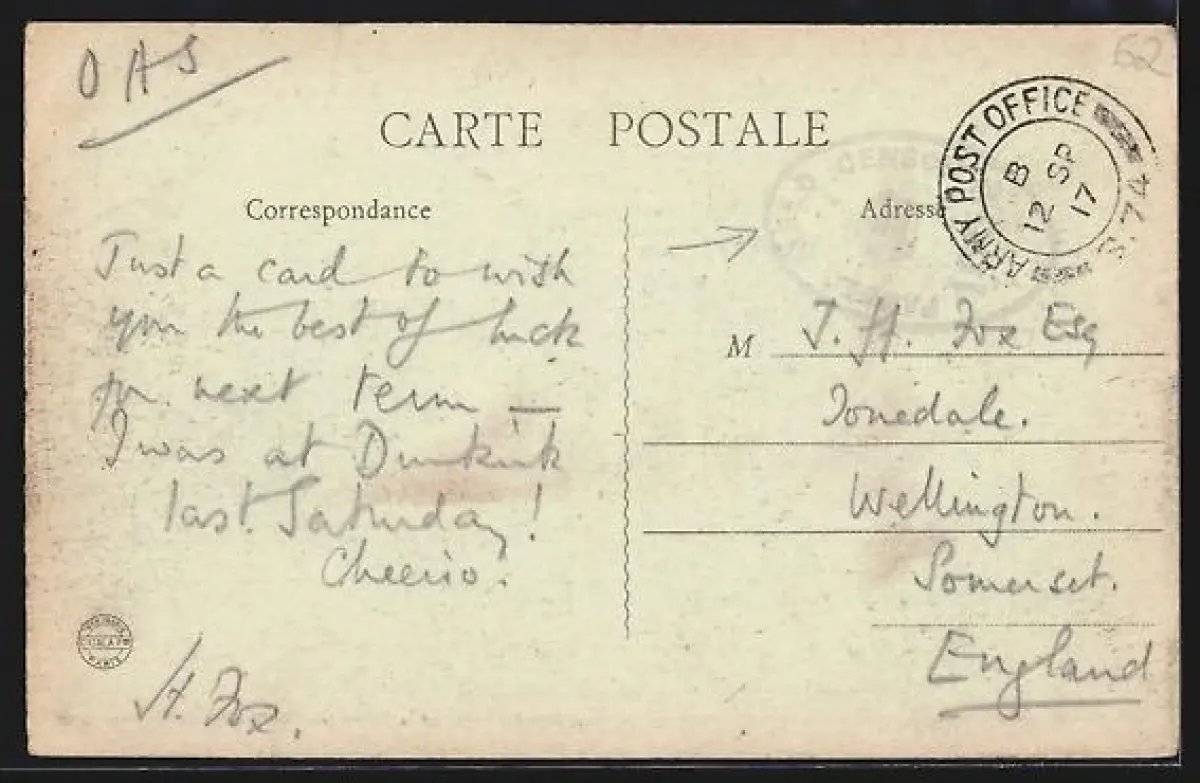 OAS
62
CARTE POSTALE
ARMY POST OFFICE S.74
B
12 SP 17
CENSOR
Correspondance
Adresse
Just a card to wish
you the best of luck
for next term —
I was at Dunkirk
last Saturday!
Cheerio.
H. Fox.
M J. H. Fox Esq
Tonedale.
Wellington.
Somerset.
England
PARIS